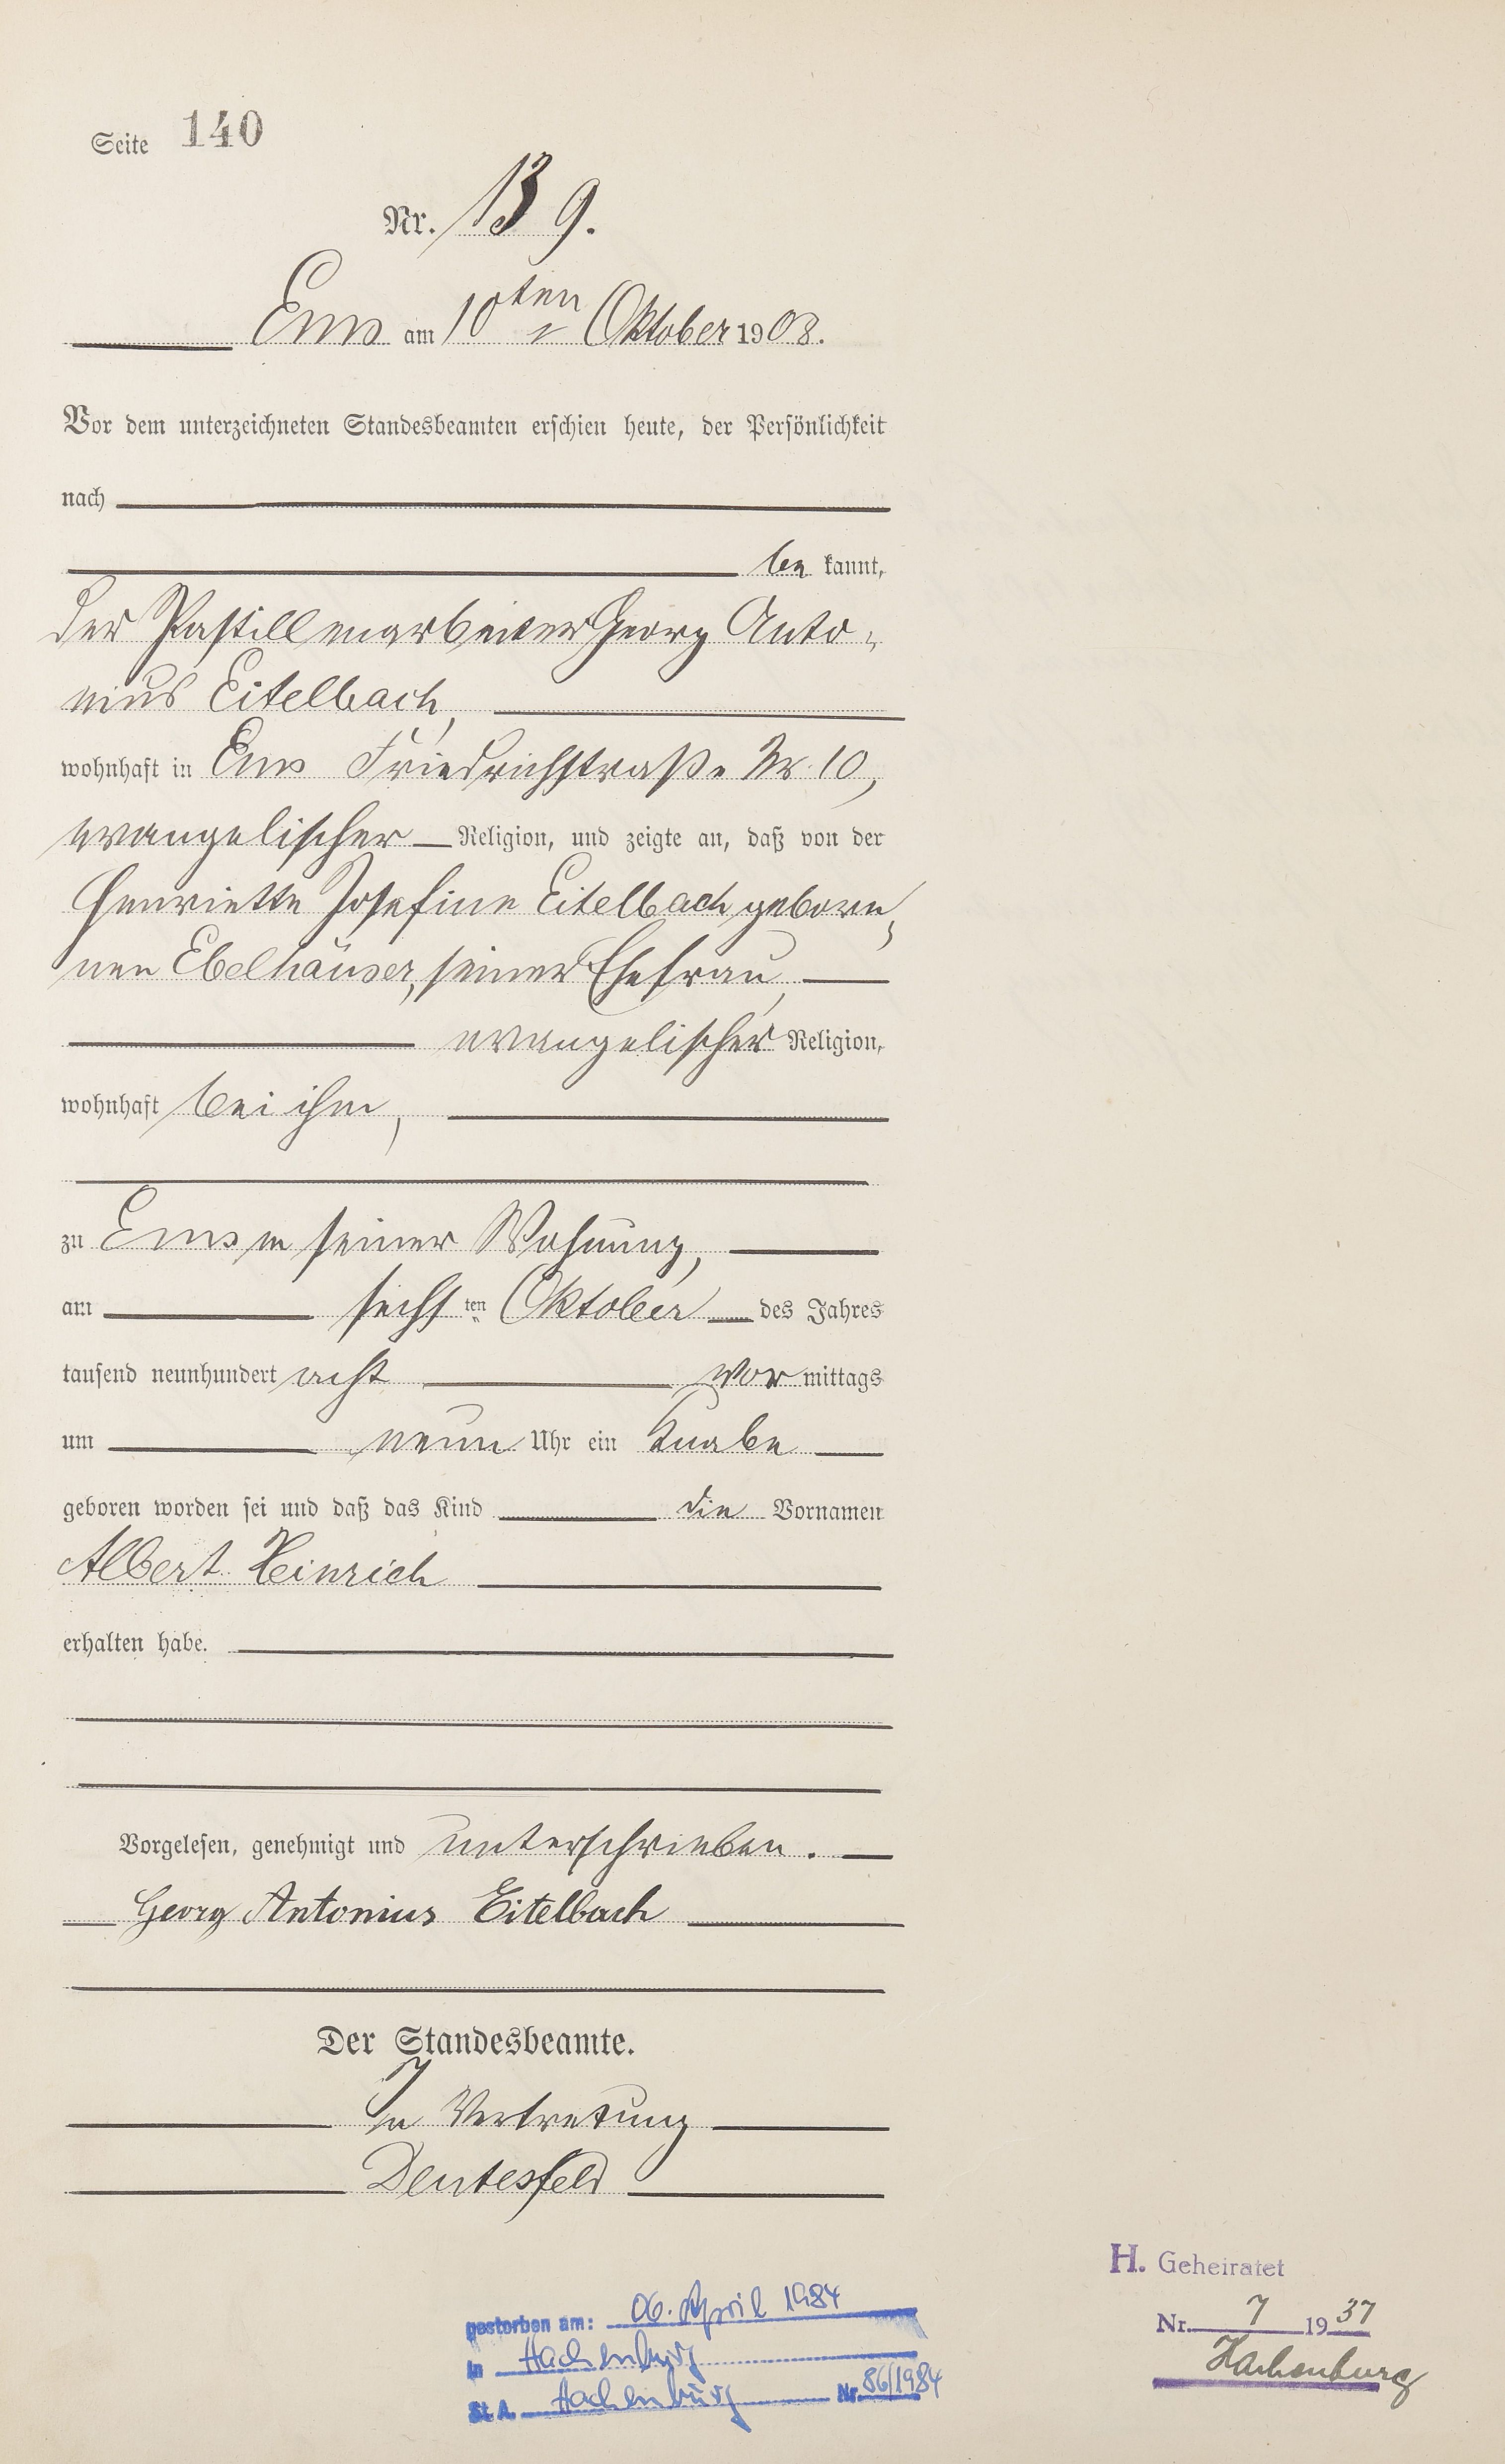 Seite 140
Nr. 139.
Ems am 10ten Oktober 1908.
Vor dem unterzeichneten Standesbeamten erschien heute, der Persönlichkeit
nach
be kannt,
der Pastillenarbeiter Georg Anto-
nius Eitelbach,
wohnhaft in Ems Friedrichstraße Nr. 10,
evangelischer Religion, und zeigte an, daß von der
Henriette Josefine Eitelbach gebore-
nen Ebelhäuser, seiner Ehefrau,
evangelischer Religion,
wohnhaft bei ihm,
zu Ems in seiner Wohnung,
am sechsten Oktober des Jahres
tausend neunhundert acht vor mittags
um neun Uhr ein Knabe
geboren worden sei und daß das Kind die Vornamen
Albert Heinrich
erhalten habe.
Vorgelesen, genehmigt und unterschrieben.
Georg Antonius Eitelbach
Der Standesbeamte.
In Vertretung
Deutesfeld
gestorben am: 06. April 1984
in Hachenburg
St. A. Hachenburg Nr. 86/1984
H. Geheiratet
Nr. 7 1937
Hachenburg